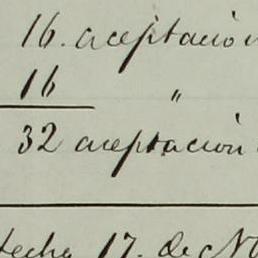 16. aceptacion
16 "
32 aceptacion
fecha 17. de No